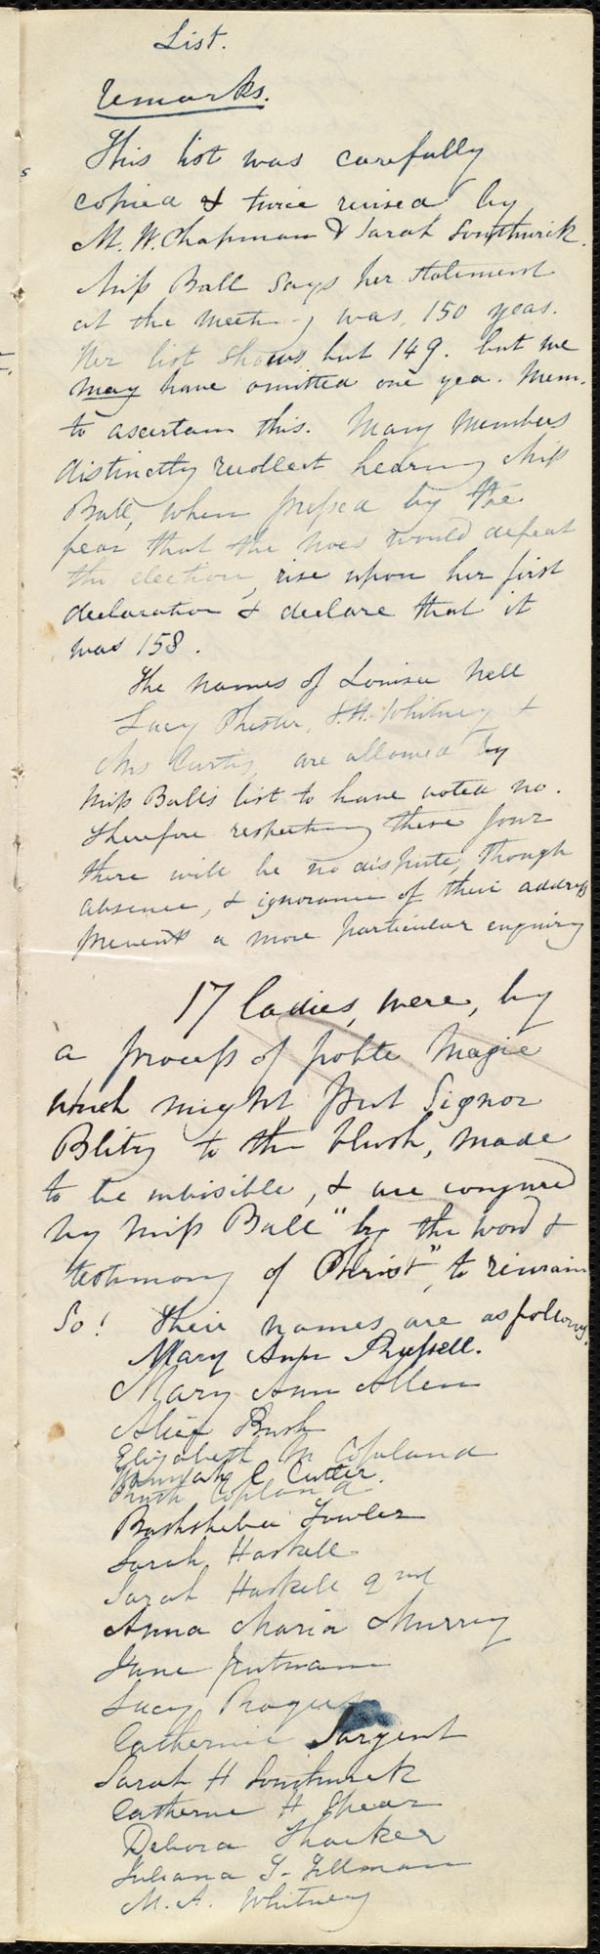 List.
Remarks.
This list was carefully
copied & twice revised by
M. W. Chapman & Sarah Southwick.
Miss Ball says her statement
at the meeting was, 150 yeas.
Her list shows but 149. but we
may have omitted one yea. Mem.
to ascertain this. Many members
distinctly recollect hearing Miss
Ball, when pressed by the
fear that the noes would defeat
the election, rise upon her first
declaration & declare that it
was 158.
The names of Louisa Nell
Lucy Chester, S.H. Whitney &
Mrs Curtis, are allowed by
Miss Ball's list to have voted no.
Therefore respecting these four
there will be no dispute, though
absence, & ignorance of their address
prevent a more particular enquiry
17 ladies, were, by
a process of polite magic
which might put Signor
Blitz to the blush, made
to be invisible, & are conjured
by Miss Ball "by the word &
testimony of Christ", to remain
so! Their names are as follows.
Mary Ann Russell.
Mary Ann Allen
Alice Bush
Elizabeth M Copeland
Hannah C Cutter.
Ruth Copland
Bathsheba Fowler
Sarah Haskell
Sarah Haskell 2nd
Anna Maria Murray
Jane Putnam
Lucy
Catherine Sargent
Sarah H Southwick
Catherine H Spear
Debora Thacker
Juliana T. Tillman
M. A. Whitney